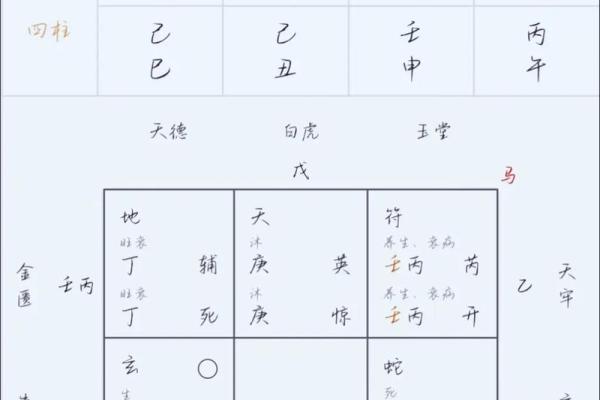 四柱 己 己 壬 丙
巳 丑 申 午
天德 白虎 玉堂
戊 马
地 天 符
旺衰 沐 养生、衰病
金匮 壬丙 丁 辅 庚 英 壬丙 芮 乙 天牢
旺衰 沐 养生、衰病
丁 死 庚 惊 壬丙 开
玄 ○ 蛇
生 死